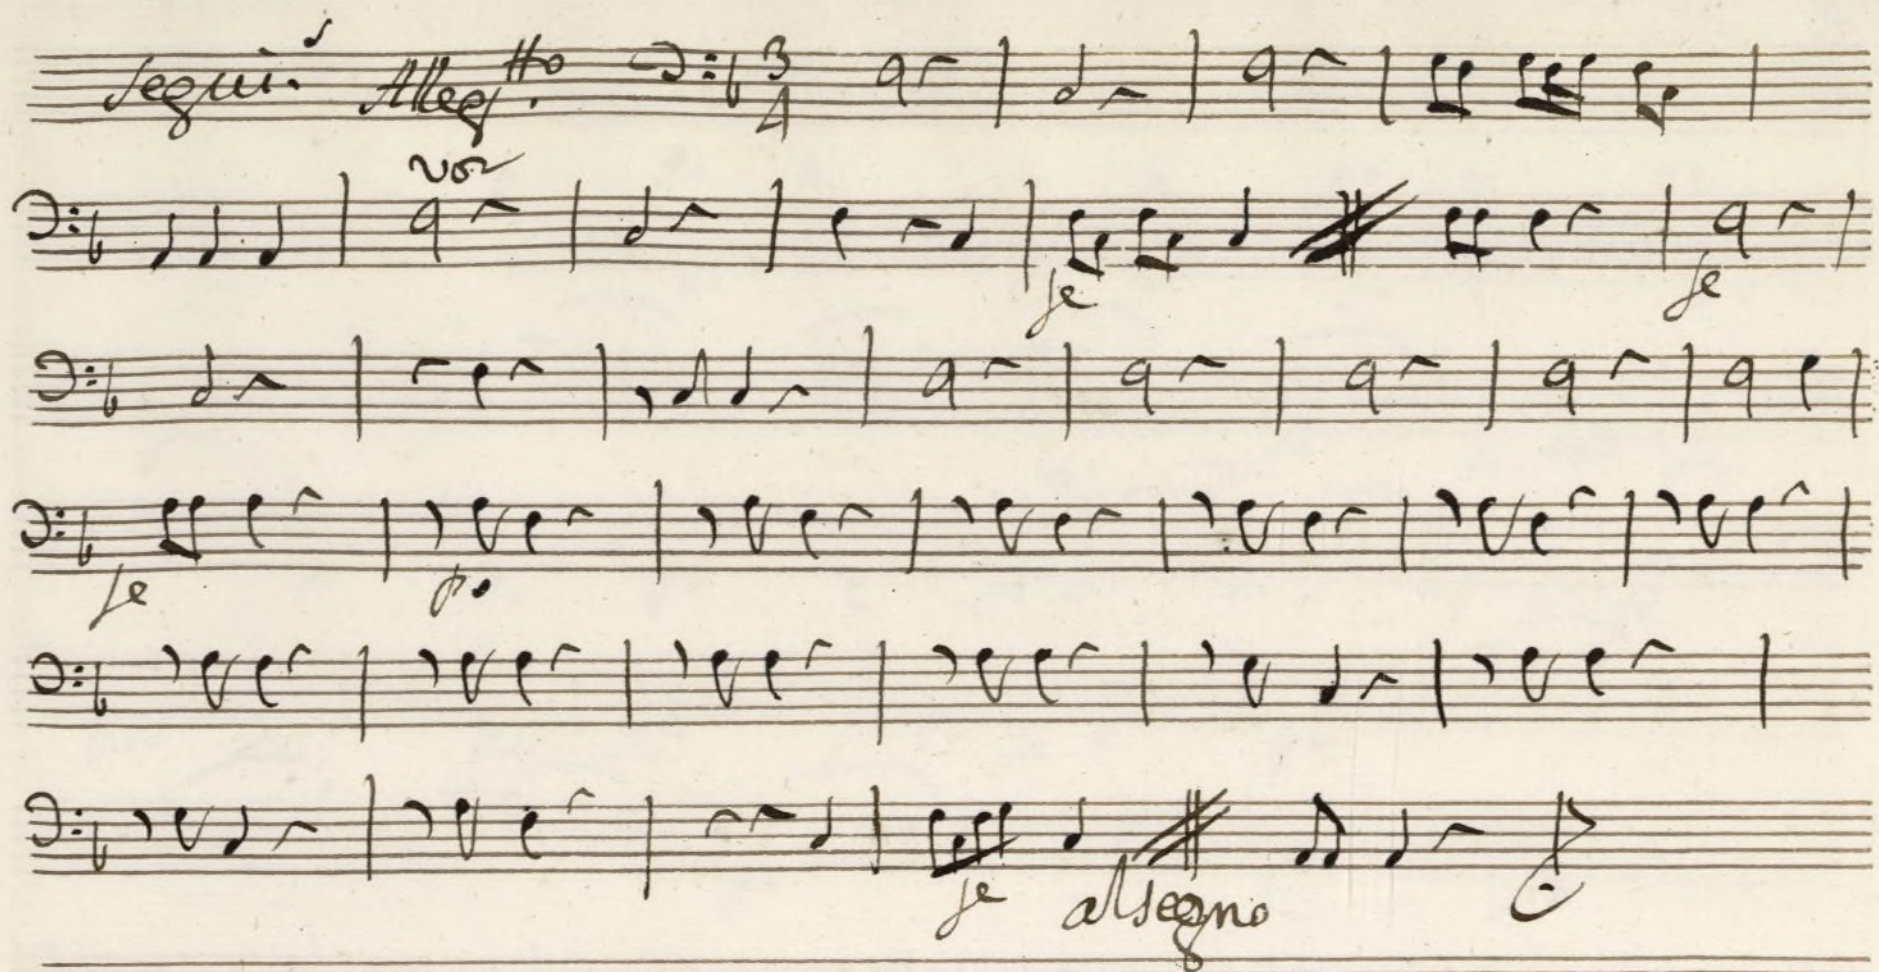 Segui.s Alleg.tto 3/4
voz
fe fe
fe po
fe al segno